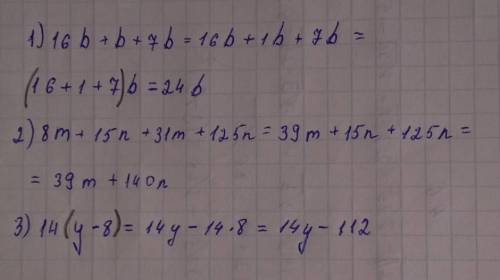 1) 16b + b + 7b = 16b + 1b + 7b =
(16 + 1 + 7)b = 24b
2) 8m + 15n + 31m + 125n = 39m + 15n + 125n =
= 39m + 140n
3) 14(y - 8) = 14y - 14 · 8 = 14y - 112